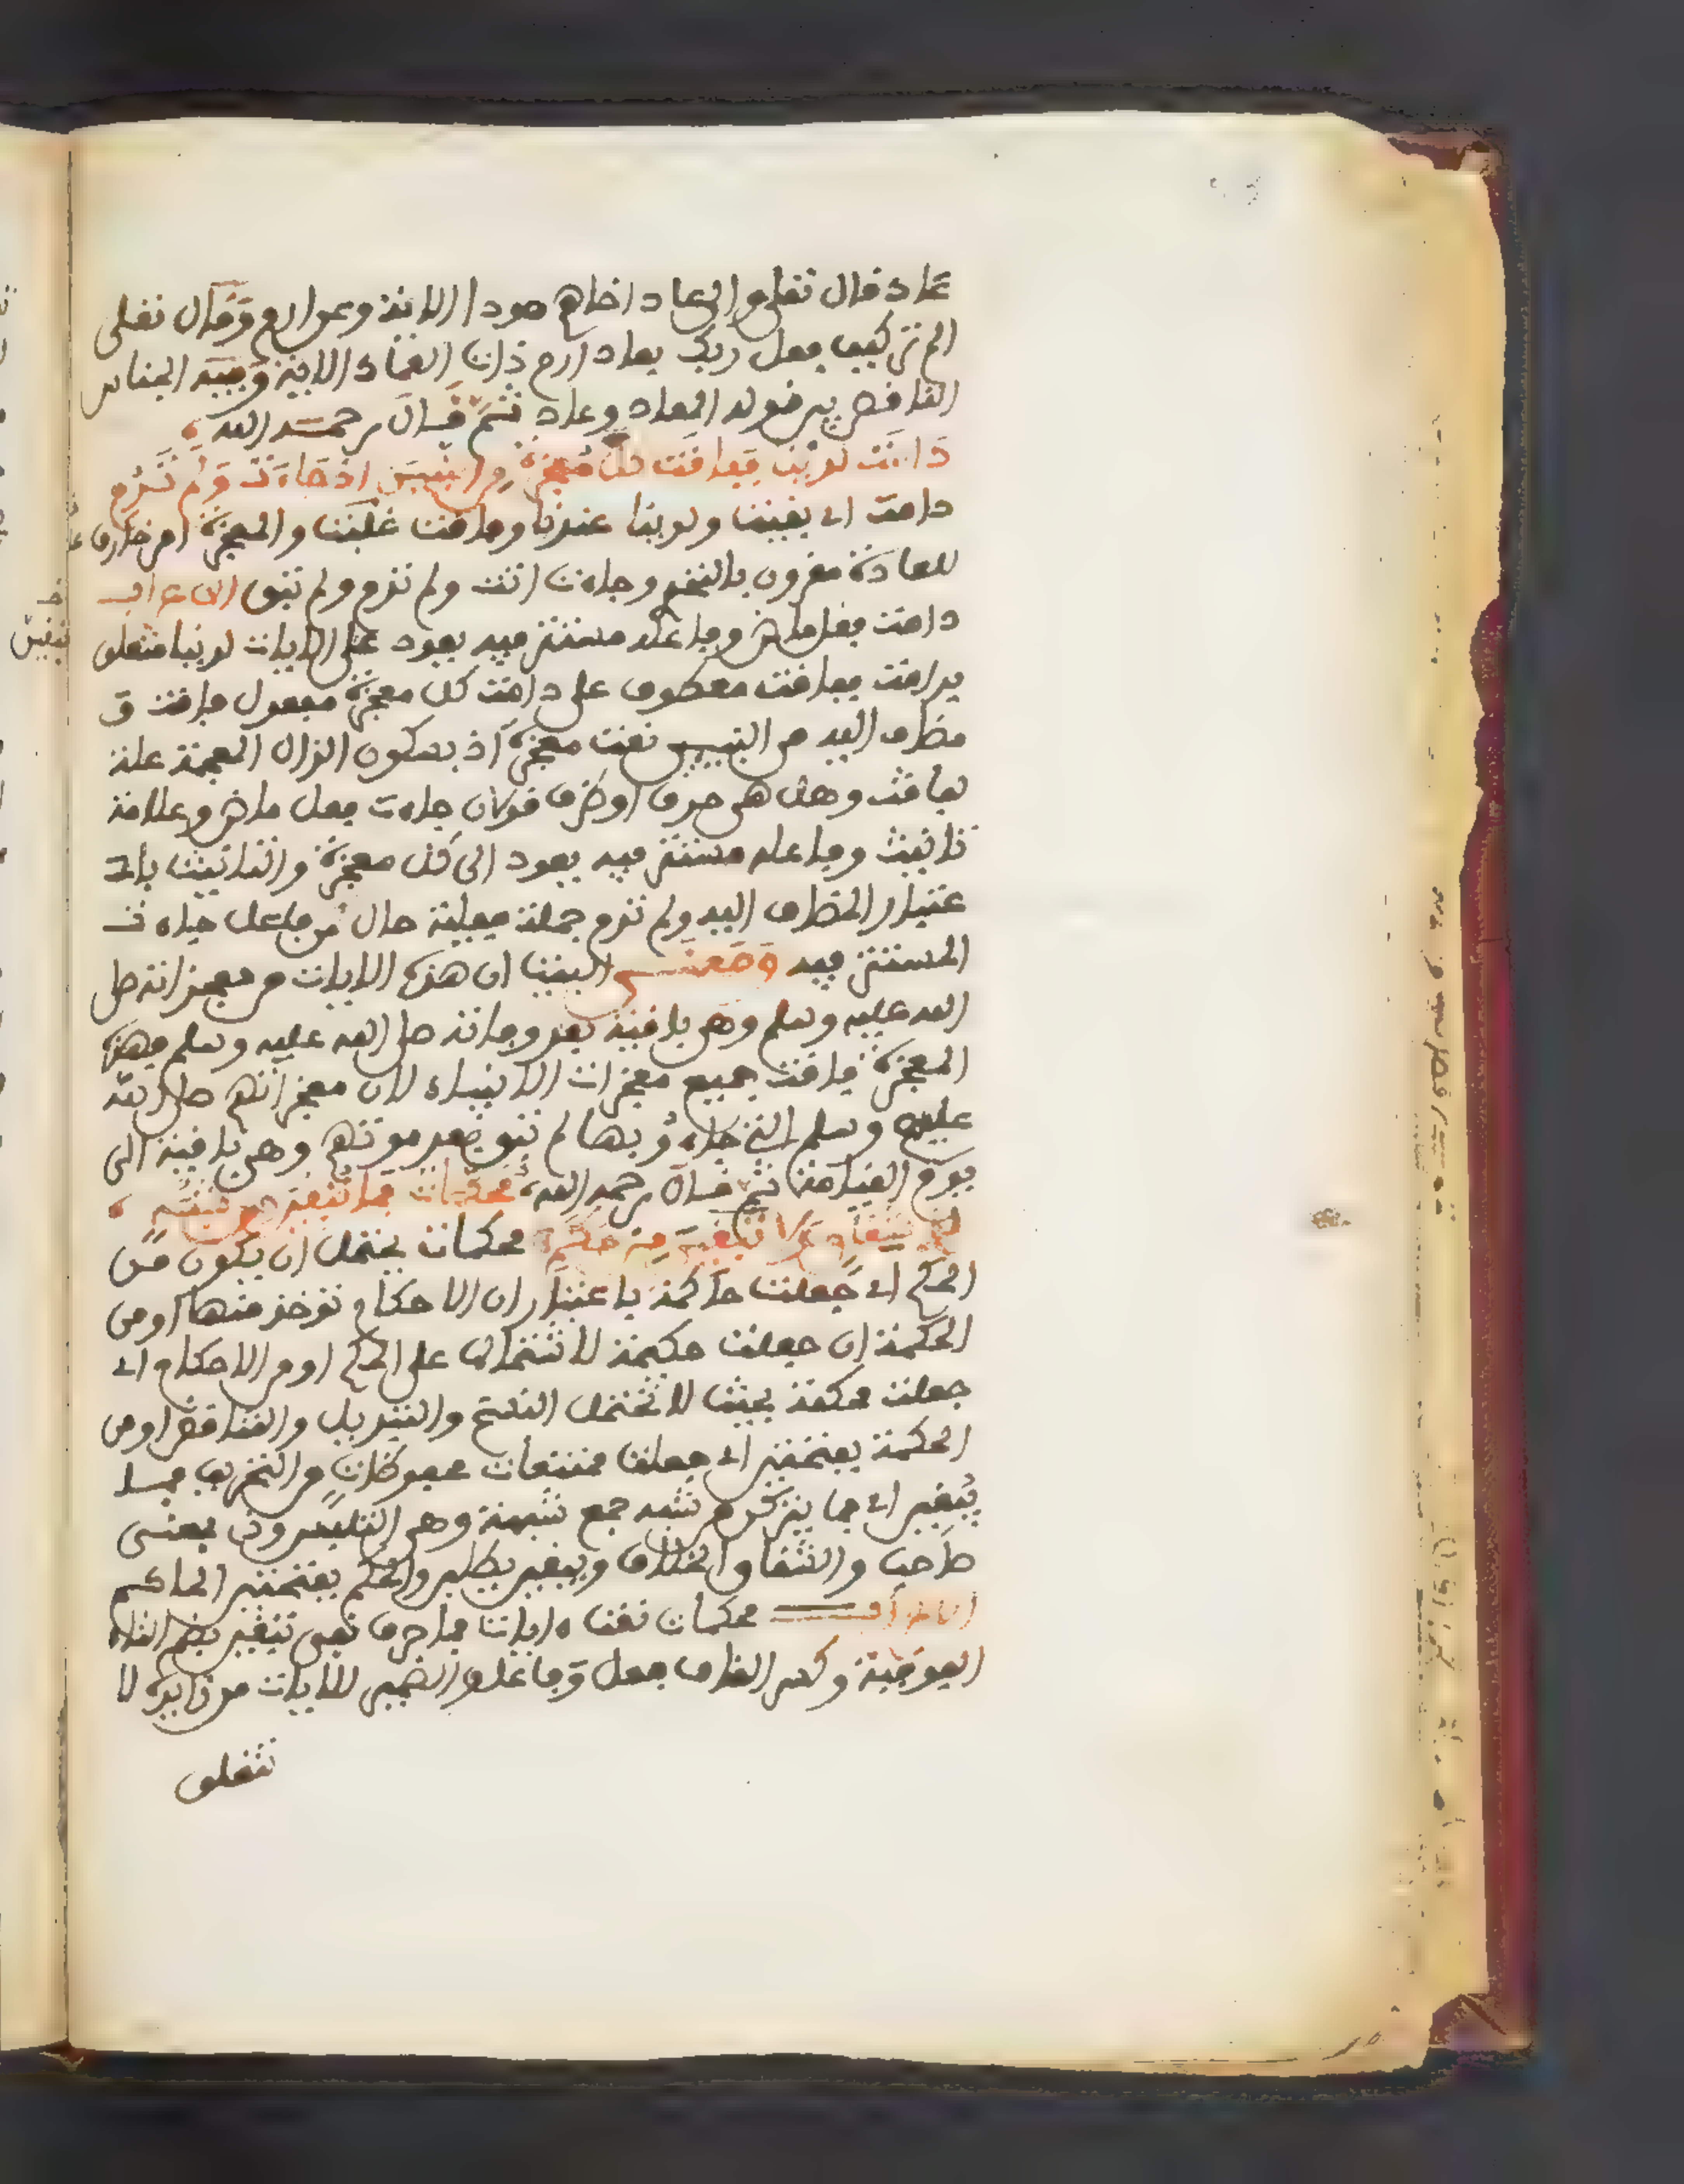 عاد قال تعلى والى عاد اخاهم هودا الاية وعن ارم وقال تعلى
الم تر كيف فعل ربك بعاد ارم ذات العماد الاية وفيه الجناس
الناقص بين قوله المعاد وعاد ثم قال رحمه الله
دامت لدينا ففاقت كل معجزة من النبيين اذ جاءت ولم تدم
دامت اي بقيت ولدينا عندنا وفاقت غلبت والمعجزة امر خارق
للعادة مقرون بالتحدي وجاءت اتت ولم تدم ولم تبق الاعراب
دامت فعل ماض وفاعله مستتر فيه يعود على الايات لدينا متعلق
بدامت ففاقت معطوف على دامت كل معجزة مفعول فاقت و
مضاف اليه من النبيين نعت معجزة اذ بسكون الذال المعجمة علة
لفاقت وهل هي حرف او ظرف قولان جاءت فعل ماض وعلامة
تانيث وفاعله مستتر فيه يعود الى كل معجزة والتانيث باا
عتبار المضاف اليه ولم تدم جملة فعلية حال من فاعل جاءت
المستتر فيه ومعنى البيت ان هذه الايات من معجزاته صلى
الله عليه وسلم وهي باقية بعد وفاته صلى الله عليه وسلم فهذه
المعجزة فاقت جميع معجزات الانبياء لان معجزاتهم صلى الله
عليهم وسلم التي جاءو بها لم تبق بعد موتهم وهي باقية الى
يوم القيامة ثم قال رحمه الله محكمات فما تبقين من شبه
لذي شقاق ولا تبغين من حكم محكمات يحتمل ان يكون من
الحكم اي جعلت حاكمة باعتبار ان الاحكام توخذ منها او من
الحكمة ان جعلت حكيمة لاشتمالها على الحكم او من الاحكام اي
جعلت محكمة بحيث لا تحتمل النسخ والتبديل والتناقض او من
الحكمة بفتحتين اي جعلت ممتنعات محفوظات من التحريف فما
يبقين اي فما يتركن من شبه جمع شبهة وهي التلبيس وذي بمعنى
صاحب والشقاق الخلاف ويبغين يطلبن والحكم بفتحتين الحاكم
الاعراب محكمات نعت ءايات فما حرف نفي تبقين بضم التاء
الفوقية وكسر القاف فعل وفاعل والضمير للايات من زايدة لا
تتعلق